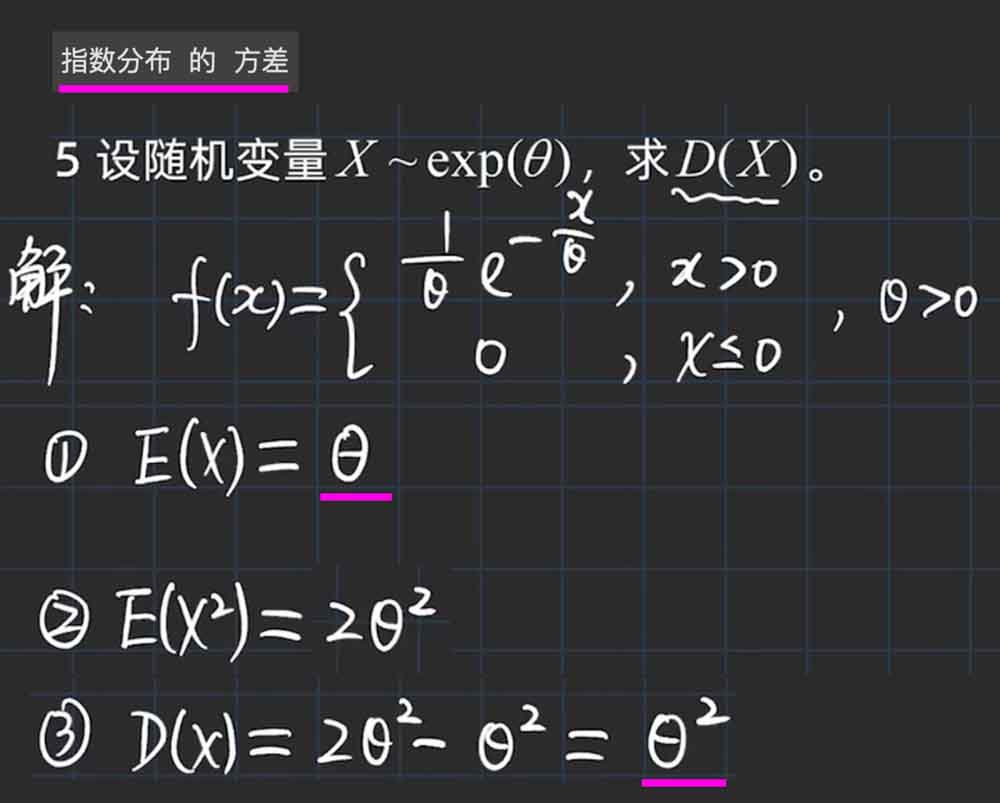 指数分布 的 方差
5 设随机变量 X ~ exp(θ), 求 D(X)。
解: f(x) = { 1/θ e^(-x/θ), x>0
0, x≤0, θ>0
① E(X) = θ
② E(X²) = 2θ²
③ D(X) = 2θ² - θ² = θ²